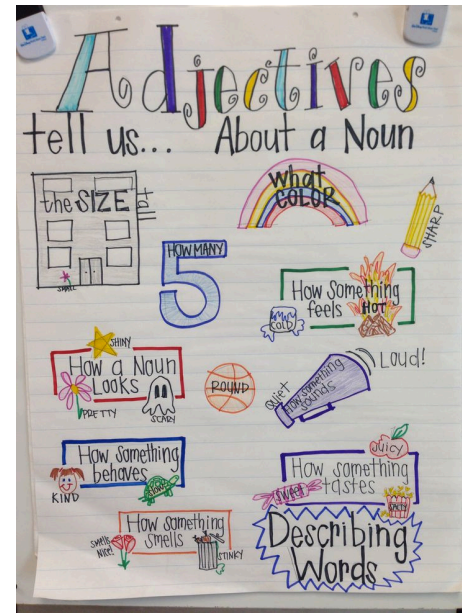 Adjectives
tell us... About a Noun
the SIZE
tall
SMALL
What
COLOR
SHARP
HOW MANY
5
How Something
feels
HOT
COLD
SHINY
How a Noun
Looks
PRETTY
SCARY
ROUND
Quiet
How something
sounds
Loud!
How something
behaves
KIND
JUICY
How something
tastes
SWEET
SALTY
How something
smells
smells
Nice!
STINKY
Describing
Words